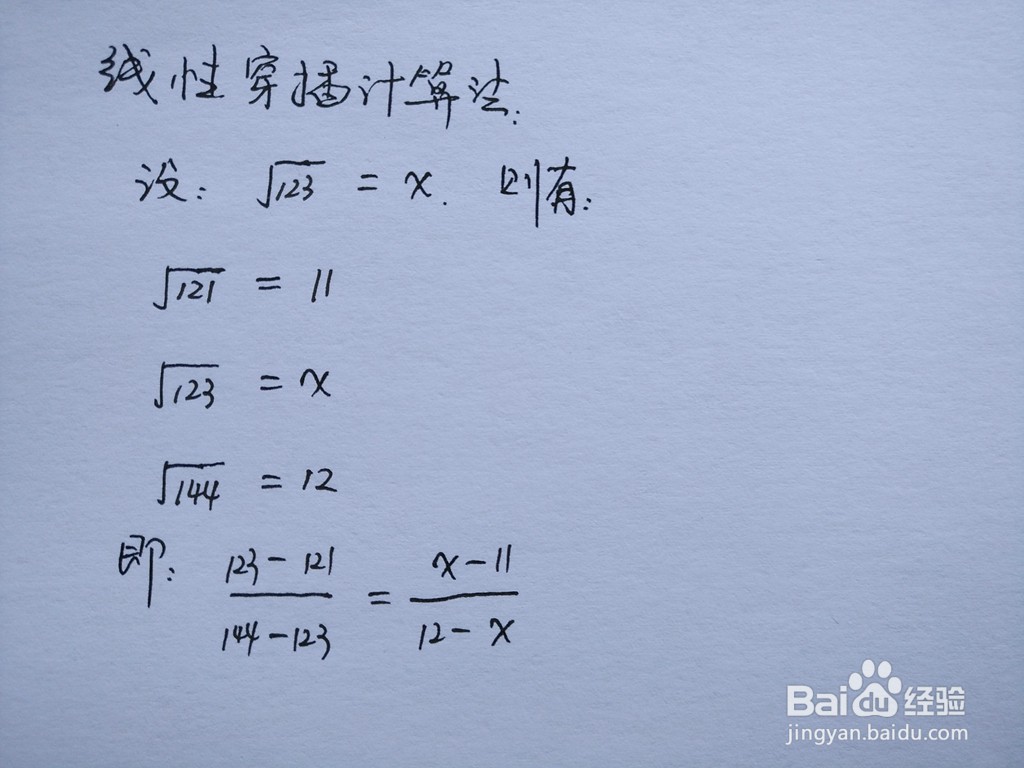 线性穿插计算法:
设: √123 = x. 则有:
√121 = 11
√123 = x
√144 = 12
即: (123-121)/(144-123) = (x-11)/(12-x)
Baidu经验
jingyan.baidu.com